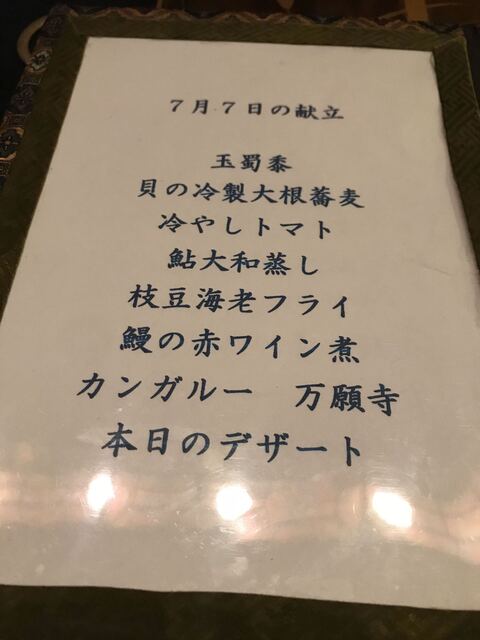 7月7日の献立
玉蜀黍
貝の冷製大根蕎麦
冷やしトマト
鮎大和蒸し
枝豆海老フライ
鰻の赤ワイン煮
カンガルー　万願寺
本日のデザート